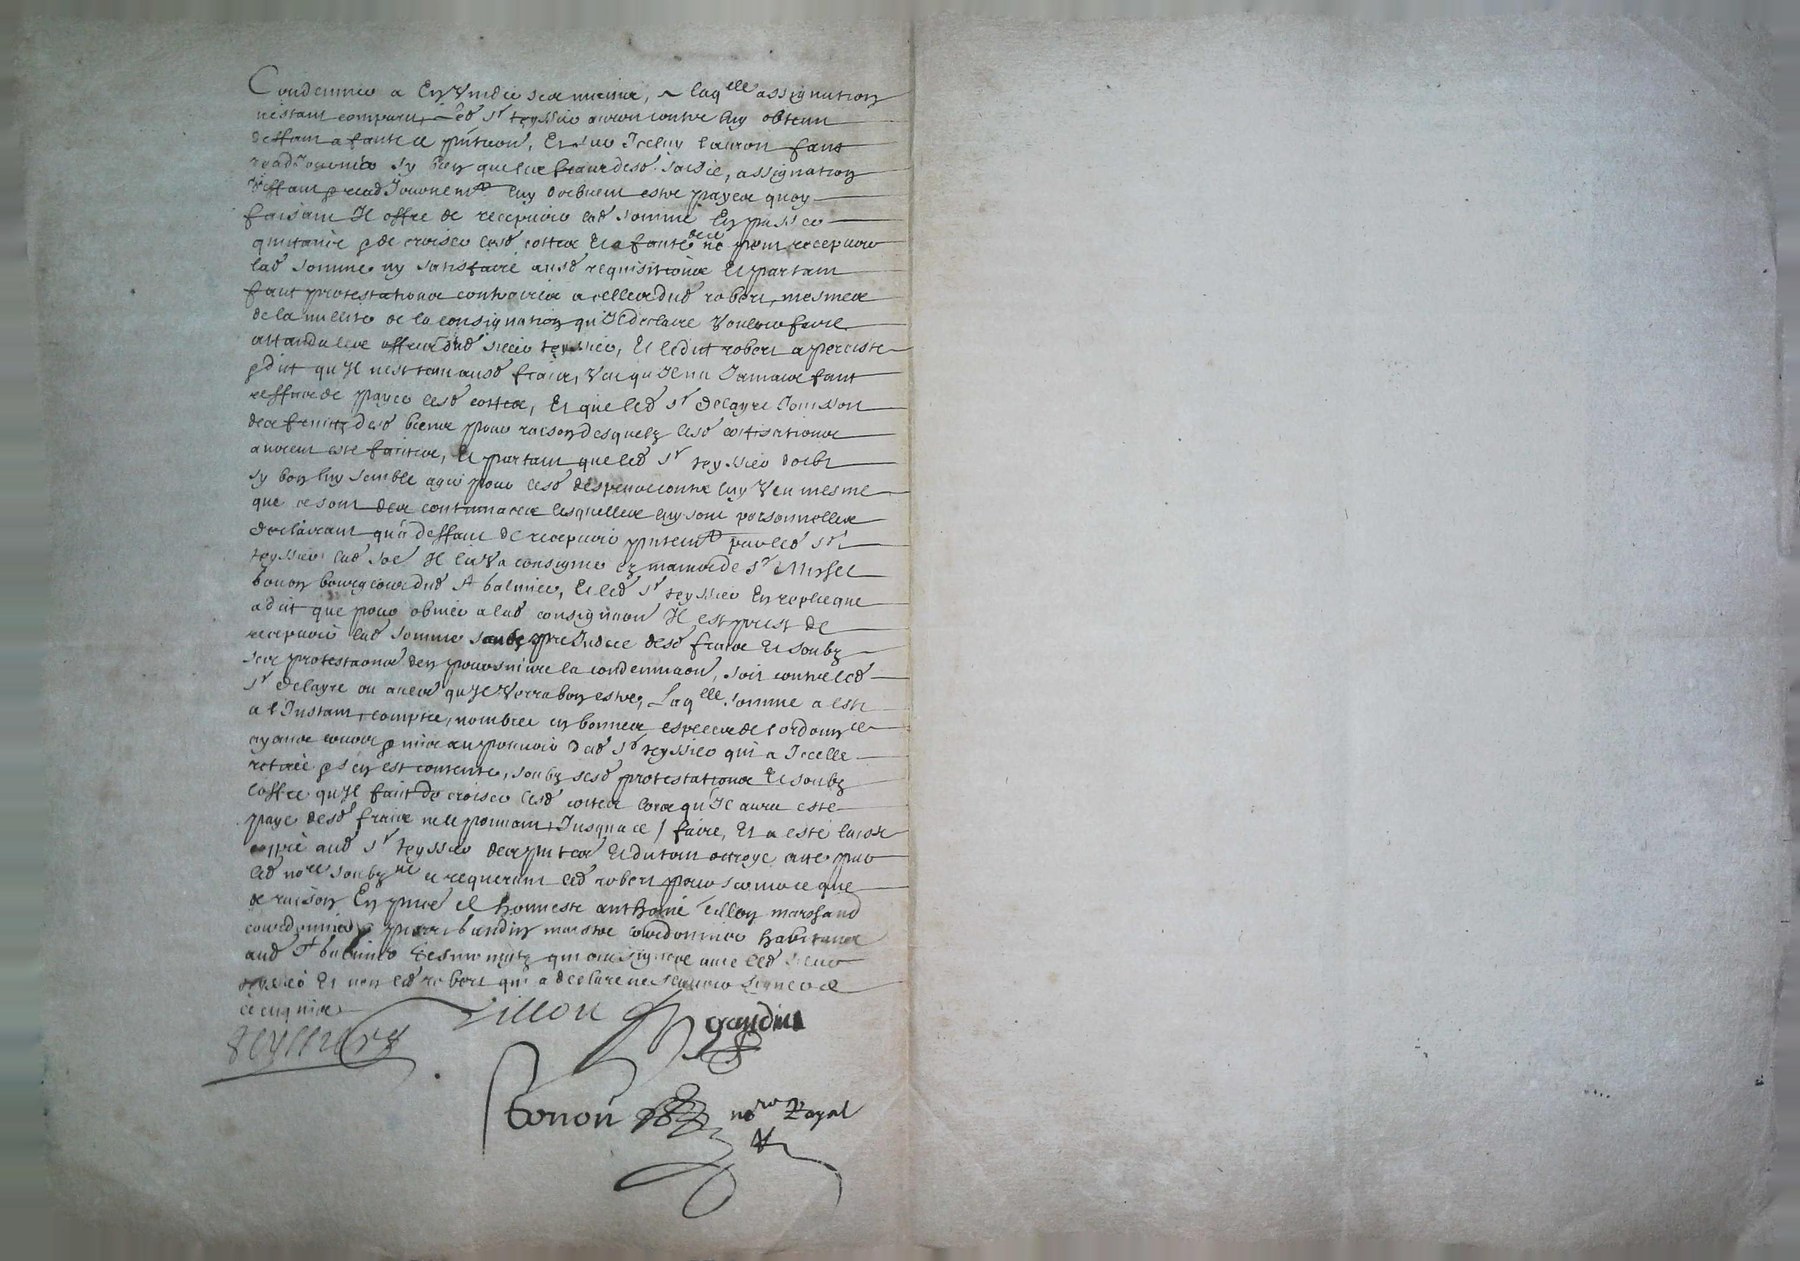 Condemner a En Vuider ses mains, a laq^elle assignation
nestant comparu, Led s^r teyssier auroit contre luy obtenu
deffaut a faute de pntaon, Et sur Icelluy lauroit fait
readjourner sy bien que les fraix desd saisie, assignation
deffaut & readjournem^t luy doibuent estre payes quoy
faisant Il offre de recepuoir lad somme En passer
quittance & de croiser lesd cottes Et a faute de ce ne peut recepuoir
lad somme ny satisfaire ausd requisitions Et partant
fait protestations contraires a celles dud robert, mesmes
de la nullite de la consignation qu'Il declaire Vouloir faire
attandu les offres dud sieur teyssier, Et ledit robert a perciste
& dit qu'Il n'est tenu ausd fraix, Veu qu'Il na Jamais fait
reffus de payer lesd cottes, Et que led s^r delayre Jouissoit
des fruitz desd biens pour raison desquelz lesd cottisations
auroient este faittes, Et partant que led s^r teyssier doibt
sy bon luy semble agir pour lesd despens contre luy Veu mesme
que ce sont des contumaces lesquelles luy sont personnelles
declairant qu'a deffaut de recepuoir pntem^t par led s^r
teyssier lad soe Il la Va consigner Ez mains de s^r Michel
bonon bourgeois dud s^t balmier, Et led s^r teyssier En replicque
a dit que pour obuier a lad consignaon Il est prest de
recepuoir lad somme sans preJudice desd fraix Et soubz
ses protestaons den poursuiure la condemnaon, soit contre led
s^r delayre ou autres qu'Il Verra bon estre, Laq^elle somme a este
a l'Instant comptee, nombree en bonnes especes de l'ordonn^ce
ayans cours & mise au pouuoir dud s^r teyssier qui a Icelle
retiree & s'en est contente, soubz sesd protestations Et soubz
l'offre qu'Il fait de croiser lesd cottes lors qu'Il aura este
paye desd fraix ne le pouuant Jusqua ce / faire, Et a este laisse
coppie aud s^r teyssier des pntes Et du tout octroye acte par
led no^re soubz^ne ce requerant led robert pour seruir ce que
de raison En pnce de honneste anthoine tillon marchand
courdonnier & pierre gaudin maistre courdonnier habitans
aud s^t balmier tesmoingtz qui ont signe auec led sieur
teyssier Et non led robert qui a declare ne scauoir signer de
ce enquis
teyssier tillon gaudin
bonon no^re Royal